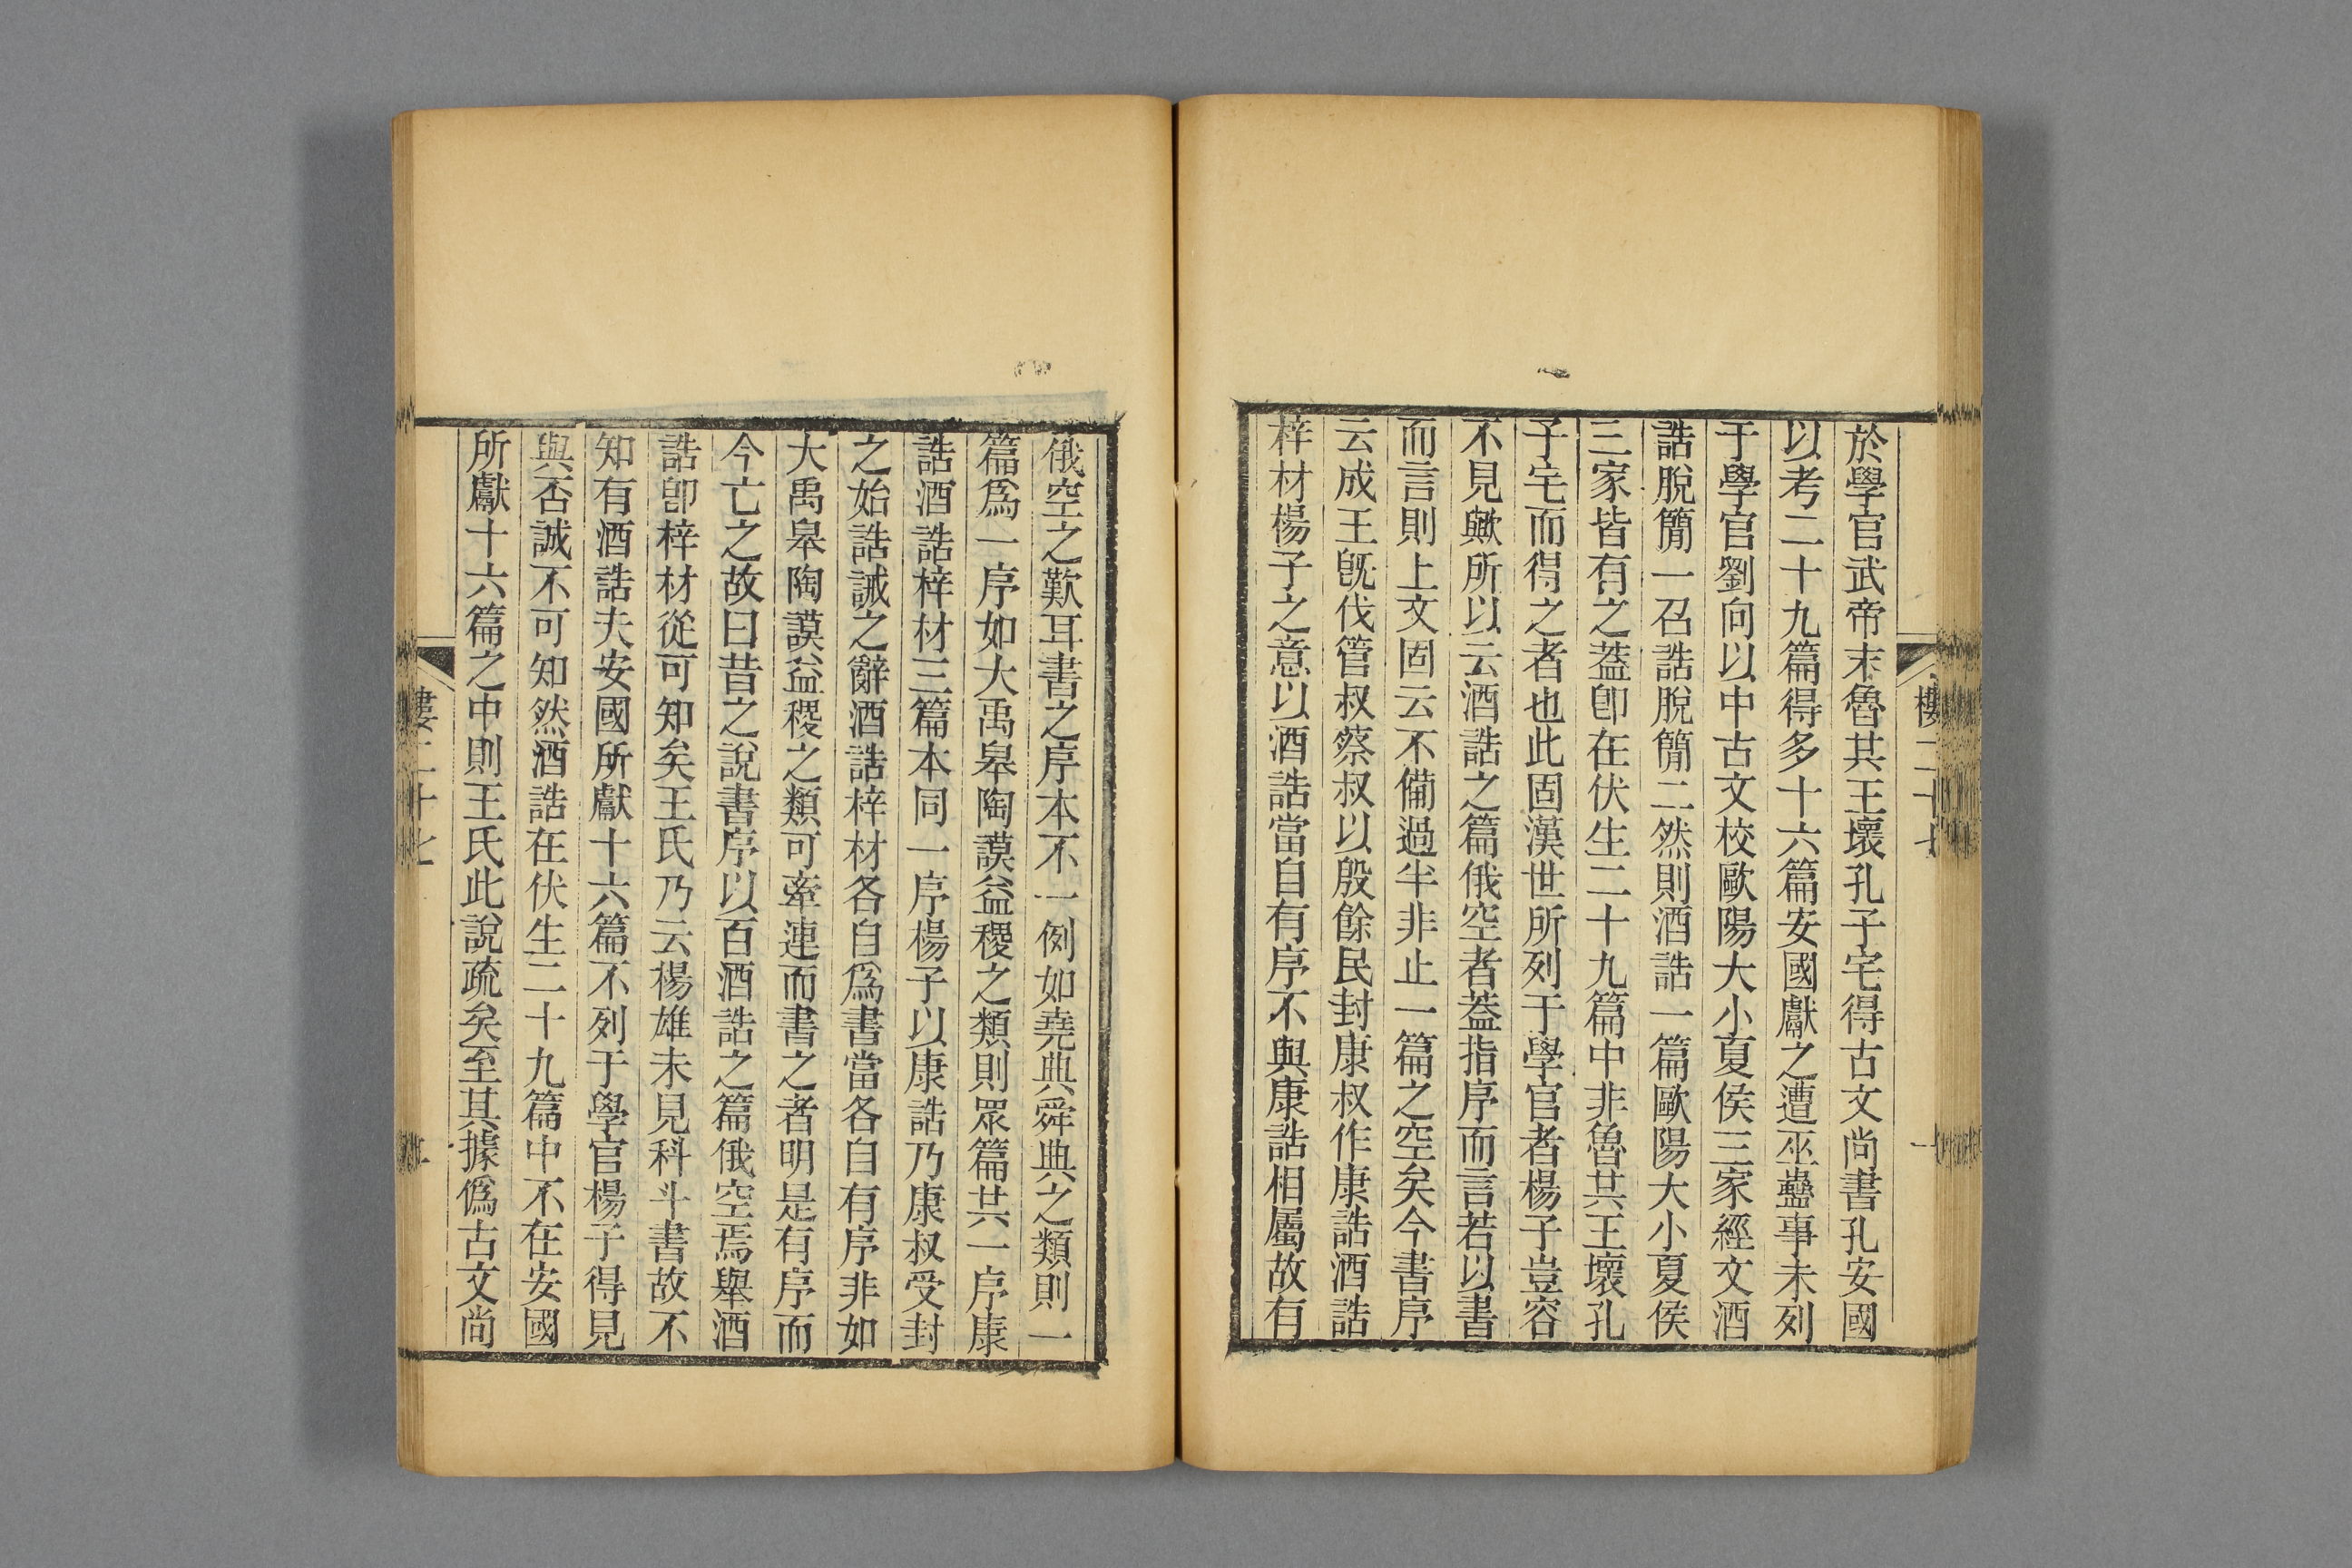 於學官武帝末魯共王壞孔子宅得古文尚書孔安國
以考二十九篇得多十六篇安國獻之遭巫蠱事未列
于學官劉向以中古文校歐陽大小夏侯三家經文酒
誥脫簡一召誥脫簡二然則酒誥一篇歐陽大小夏侯
三家皆有之葢卽在伏生二十九篇中非魯共王壞孔
子宅而得之者也此固漢世所列于學官者楊子豈容
不見歟所以云酒誥之篇俄空者葢指序而言若以書
而言則上文固云不備過半非止一篇之空矣今書序
云成王旣伐管叔蔡叔以殷餘民封康叔作康誥酒誥
梓材楊子之意以酒誥當自有序不與康誥相屬故有
俄空之歎耳書之序本不一例如堯典舜典之類則一
篇爲一序如大禹皋陶謨益稷之類則眾篇共一序康
誥酒誥梓材三篇本同一序楊子以康誥乃康叔受封
之始誥誡之辭酒誥梓材各自爲書當各自有序非如
大禹皋陶謨益稷之類可牽連而書之者明是有序而
今亡之故曰昔之說書序以百酒誥之篇俄空焉舉酒
誥卽梓材從可知矣王氏乃云楊雄未見科斗書故不
知有酒誥夫安國所獻十六篇不列于學官楊子得見
與否誠不可知然酒誥在伏生二十九篇中不在安國
所獻十六篇之中則王氏此說疏矣至其據僞古文尚
樓二十七